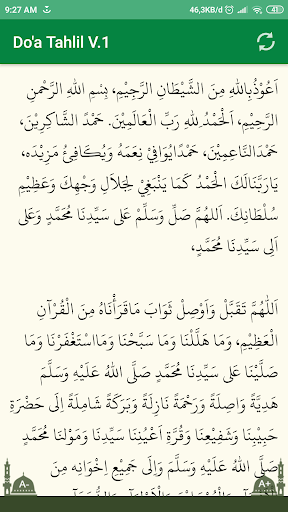 9:27 AM
46,3KB/d
Do'a Tahlil V.1
اَعُوْذُبِاللهِ مِنَ الشَّيْطَانِ الرَّجِيْمِ، بِسْمِ اللهِ الرَّحْمنِ
الرَّحِيْمِ، اَلْحَمْدُ لِلّٰهِ رَبِّ الْعَالَمِيْنَ. حَمْدًا الشَّاكِرِيْنَ،
حَمْدَالنَّاعِمِيْنَ، حَمْدًايُوَافِيْ نِعَمَهُ وَيُكَافِئُ مَزِيْدَه،
يَارَبَّنَالَكَ الْحَمْدُ كَمَا يَنْبَغِيْ لِجَلَالِ وَجْهِكَ وَعَظِيْمِ
سُلْطَانِكَ. اَللهُمَّ صَلِّ وَسَلِّمْ عَلى سَيِّدِنَا مُحَمَّدٍ وَعَلى
اَلِى سَيِّدِنَا مُحَمَّدٍ,
اَللّٰهُمَّ تَقَبَّلْ وَاَوْصِلْ ثَوَابَ مَاقَرَأْنَاهُ مِنَ الْقُرْآنِ
الْعَظِيْمِ، وَمَا هَلَّلْنَا وَمَا سَبَّحْنَا وَمَااسْتَغْفَرْنَا وَمَا
صَلَّيْنَا عَلى سَيِّدِنَا مُحَمَّدٍ صَلَّى اللهُ عَلَيْهِ وَسَلَّمَ
هَدِيَّةً وَاصِلَةً وَرَحْمَةً نَازِلَةً وَبَرَكَةً شَامِلَةً إِلَى حَضْرَةِ
حَبِيْبِنَا وَشَفِيْعِنَا وَقُرَّةِ اَعْيُنِنَا سَيِّدِنَا وَمَوْلٰنَا مُحَمَّدٍ
صَلَّى اللهُ عَلَيْهِ وَسَلَّمَ وَاِلَى جَمِيْعِ اِخْوَانِه مِنَ
A-
A+